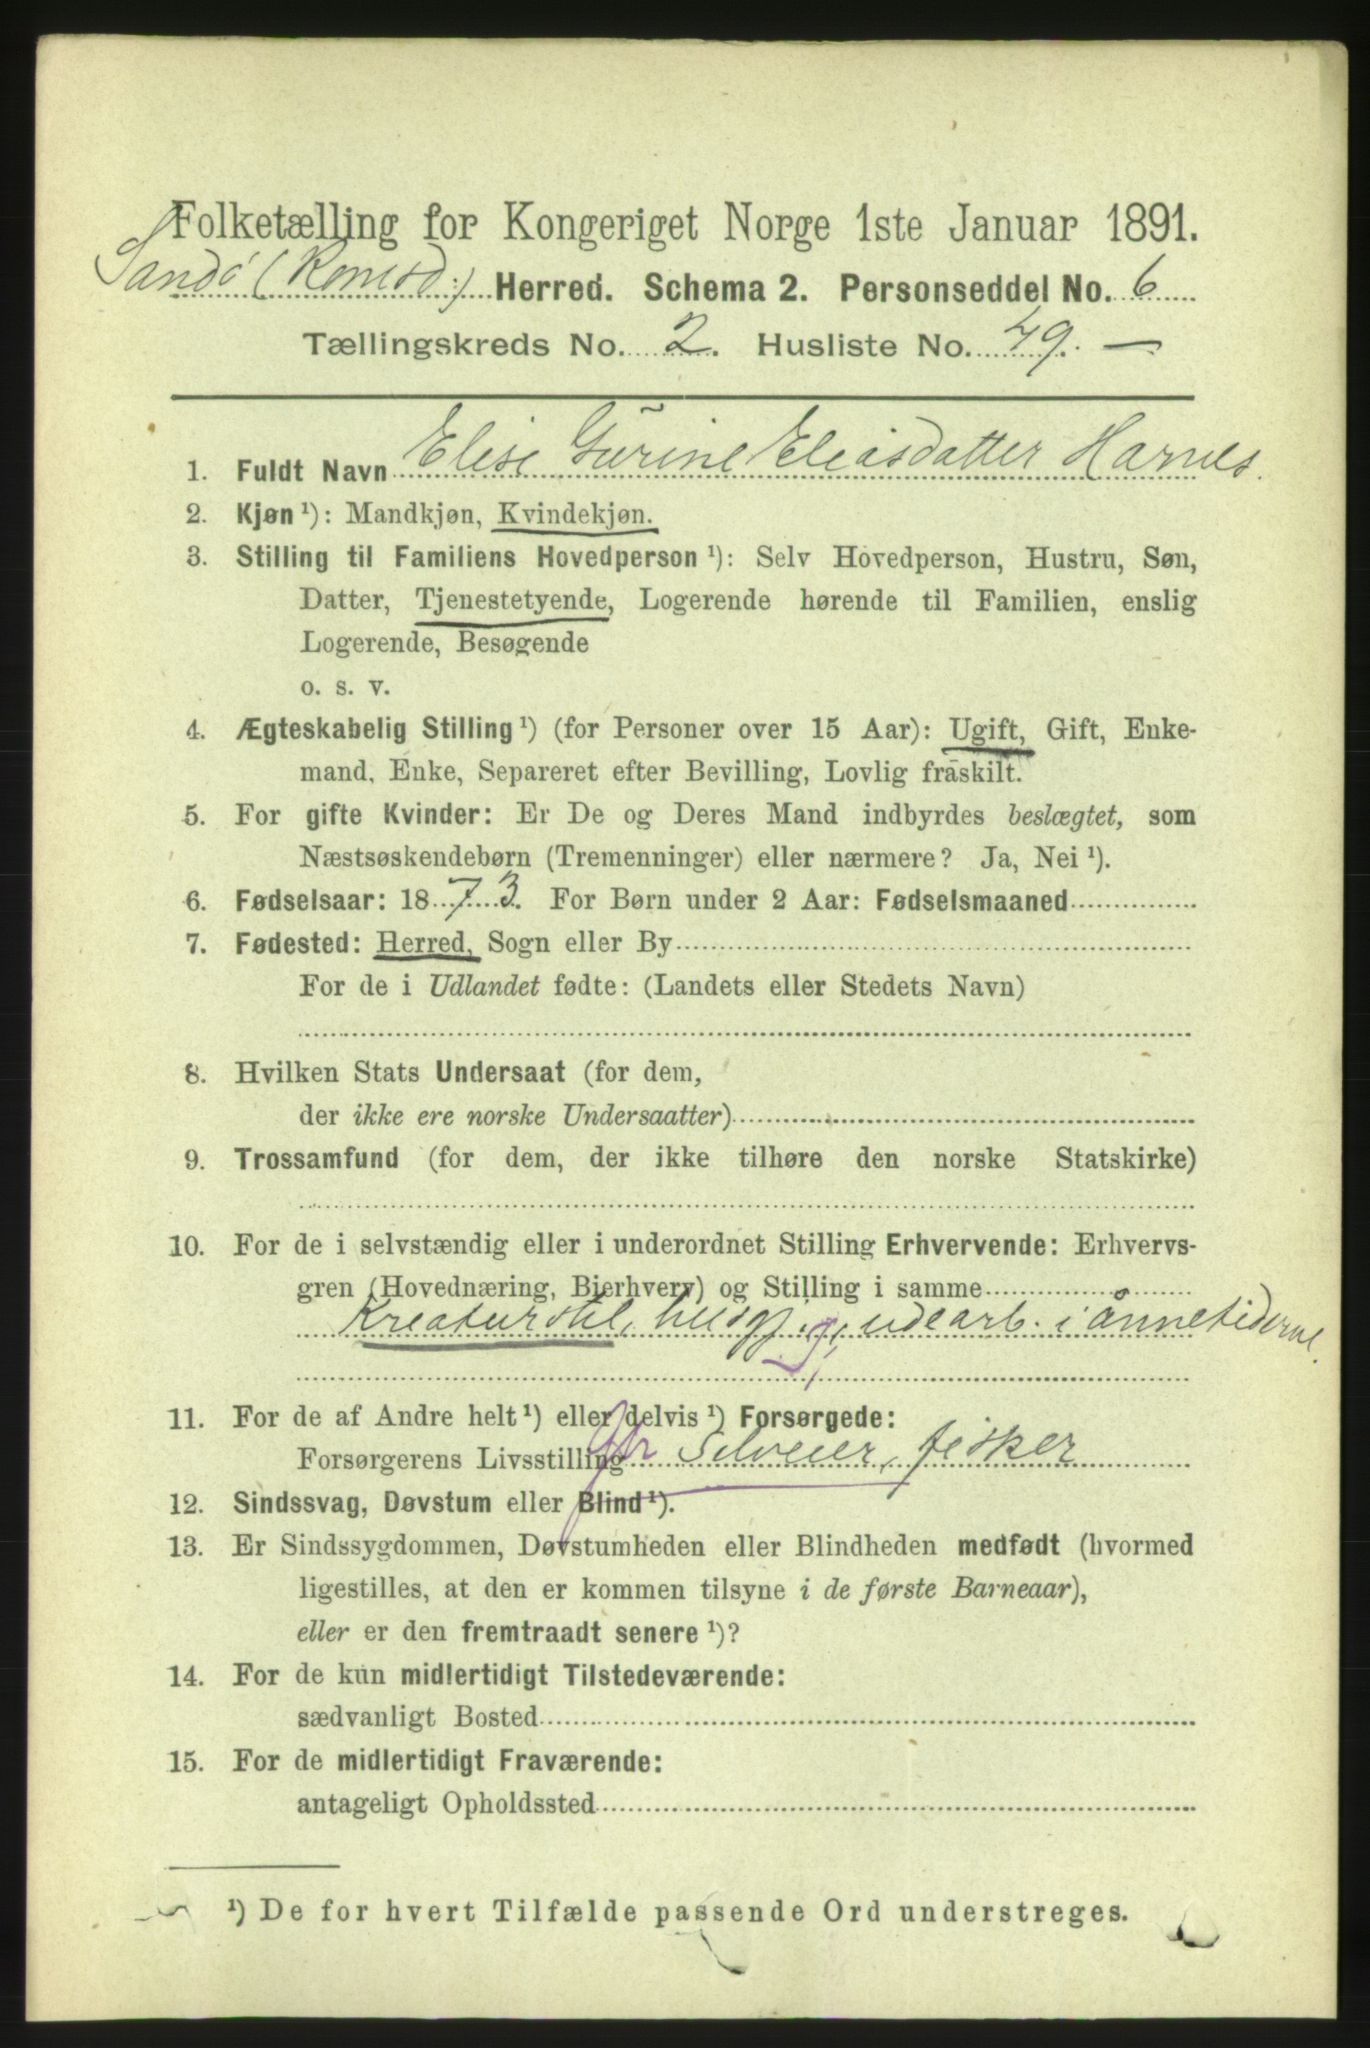 Folketælling for Kongeriget Norge 1ste Januar 1891.
Sandö (Romsd.) Herred. Schema 2. Personseddel No. 6
Tællingskreds No. 2. Husliste No. 49. —
1. Fuldt Navn Elise Gurine Eliasdatter Harnes.
2. Kjøn ¹): Mandkjøn, Kvindekjøn.
3. Stilling til Familiens Hovedperson ¹): Selv Hovedperson, Hustru, Søn,
Datter, Tjenestetyende, Logerende hørende til Familien, enslig
Logerende, Besøgende
o. s. v.
4. Ægteskabelig Stilling ¹) (for Personer over 15 Aar): Ugift, Gift, Enke-
mand, Enke, Separeret efter Bevilling, Lovlig fraskilt.
5. For gifte Kvinder: Er De og Deres Mand indbyrdes beslægtet, som
Næstsøskendebørn (Tremenninger) eller nærmere? Ja, Nei ¹).
6. Fødselsaar: 1873. For Børn under 2 Aar: Fødselsmaaned
7. Fødested: Herred, Sogn eller By
For de i Udlandet fødte: (Landets eller Stedets Navn)
8. Hvilken Stats Undersaat (for dem,
der ikke ere norske Undersaatter)
9. Trossamfund (for dem, der ikke tilhøre den norske Statskirke)
10. For de i selvstændig eller i underordnet Stilling Erhvervende: Erhvervs-
gren (Hovednæring, Bierhverv) og Stilling i samme
Kreaturstel, husgj. udearb. i ånnetiderne.
11. For de af Andre helt ¹) eller delvis ¹) Forsørgede:
Forsørgerens Livsstilling Selveier, fisker
12. Sindssvag, Døvstum eller Blind ¹).
13. Er Sindssygdommen, Døvstumheden eller Blindheden medfødt (hvormed
ligestilles, at den er kommen tilsyne i de første Barneaar),
eller er den fremtraadt senere ¹)?
14. For de kun midlertidigt Tilstedeværende:
sædvanligt Bosted
15. For de midlertidigt Fraværende:
antageligt Opholdssted
¹) De for hvert Tilfælde passende Ord understreges.